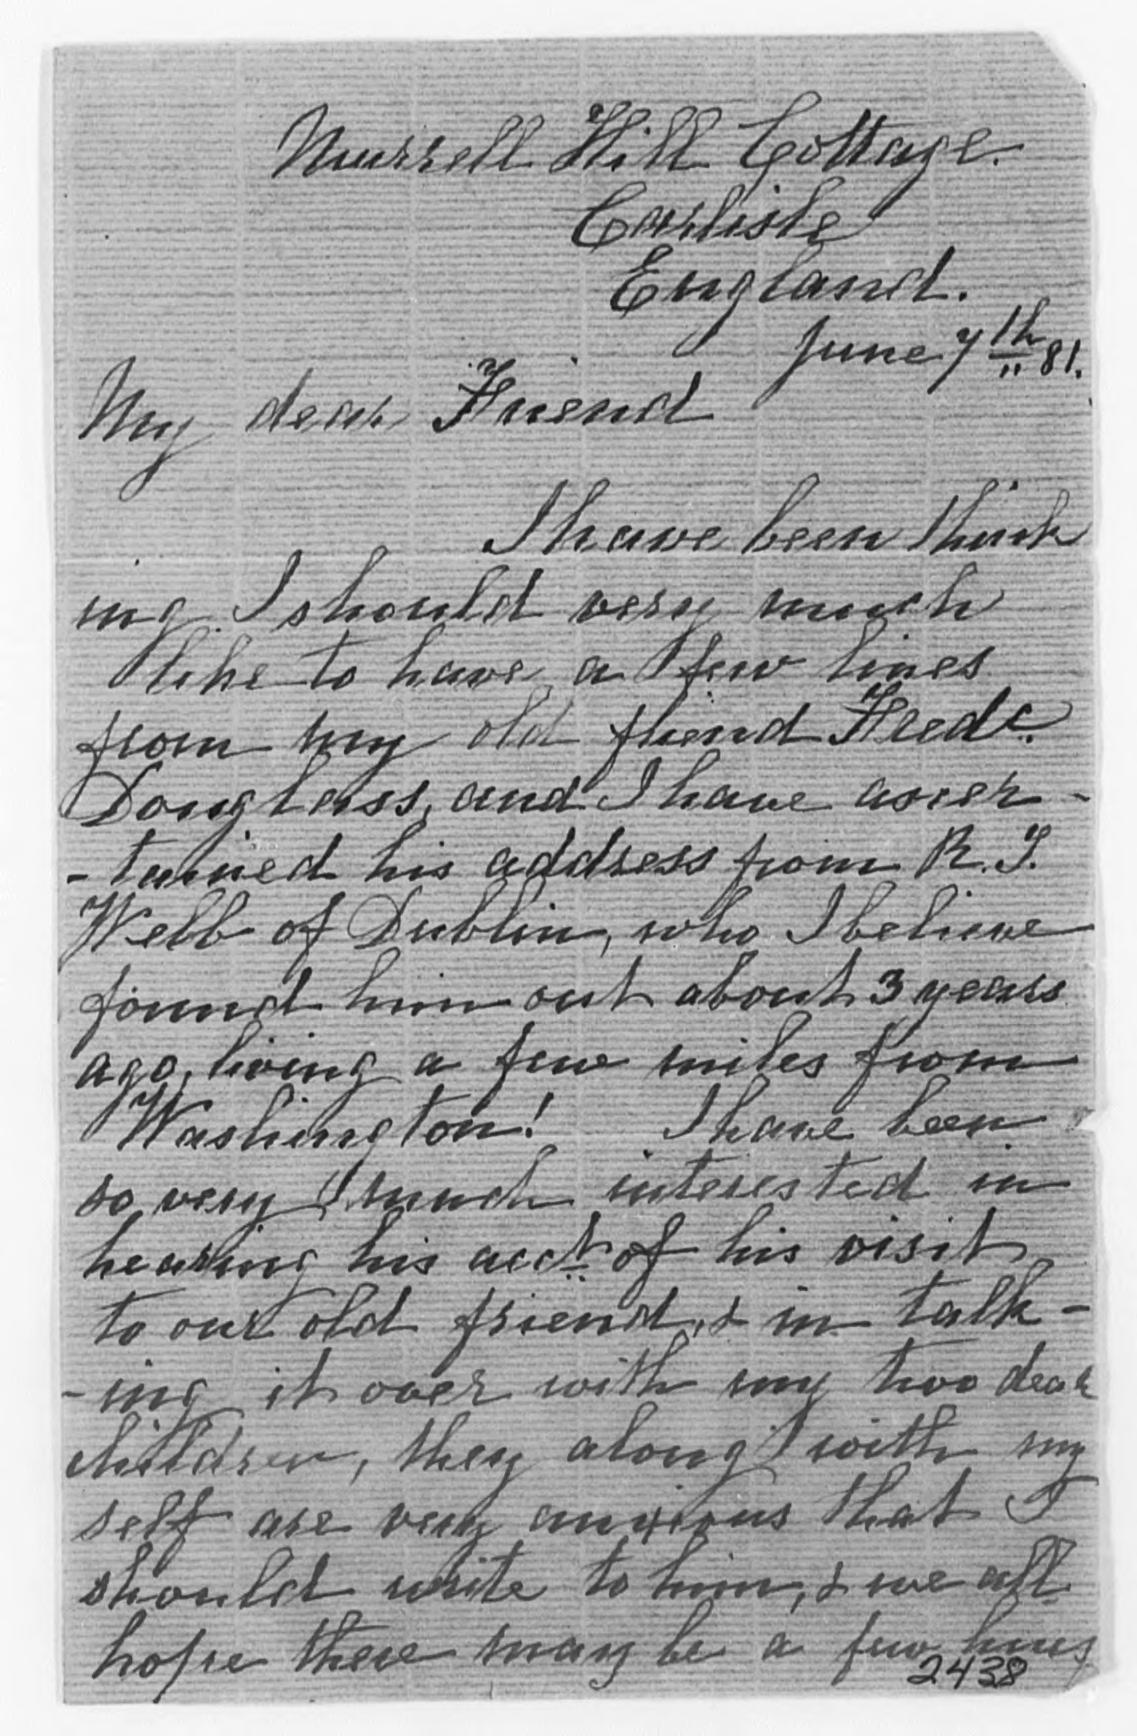 Murrell Hill Cottage.
Carlisle
England.
June 7th 81.
My dear Friend
I have been think
ing I should very much
like to have a few lines
from my old friend Fredc.
Douglass, and I have ascer-
-tained his address from R. D.
Webb of Dublin, who I believe
found him out about 3 years
ago, living a few miles from
Washington! I have been
so very much interested in
hearing his acct. of his visit
to our old friend, & in talk-
-ing it over with my two dear
children, they along with my
self are very anxious that I
should write to him, & we all
hope there may be a few lines
2438